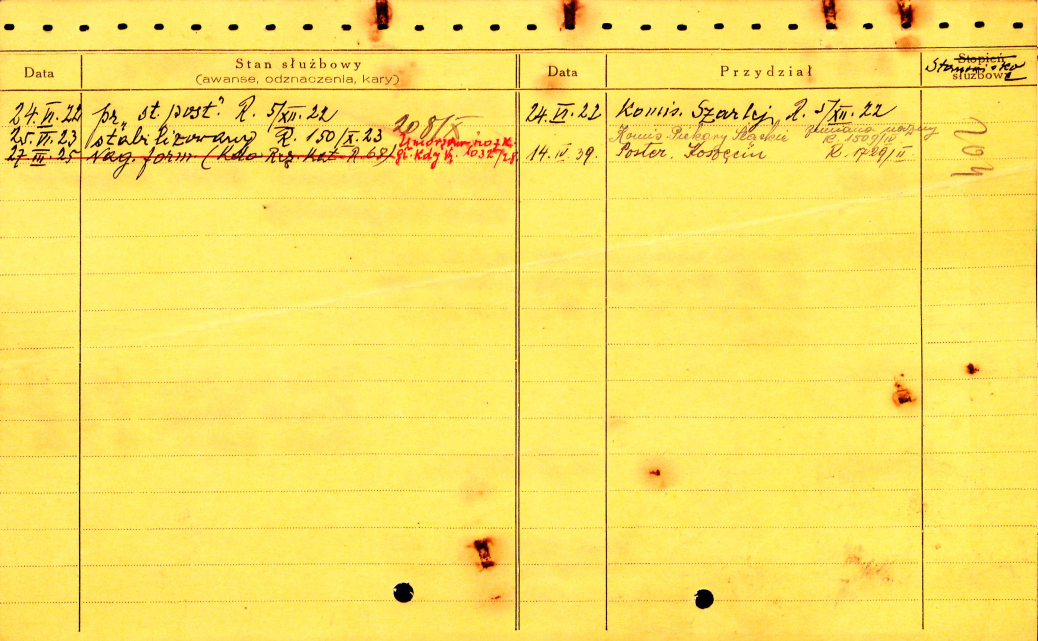 Data
Stan służbowy
(awanse, odznaczenia, kary)
Data
Przydział
Stopień
Stanowisko
służbowy
24.VI.22 pr. „st. post." R. 5/XII.22
25.VI.23 stabilizowany R. 150/X.23
208/X
27.III.25 Nag. form (Kdo Rez. R. 68)
Gł. Kdy
24.VI.22 Komis. Szarlej R. 5/XII.22
Komis. Piekary Śląskie zmiana nazwy
14.IV.39. Poster. R. 1729/II
204